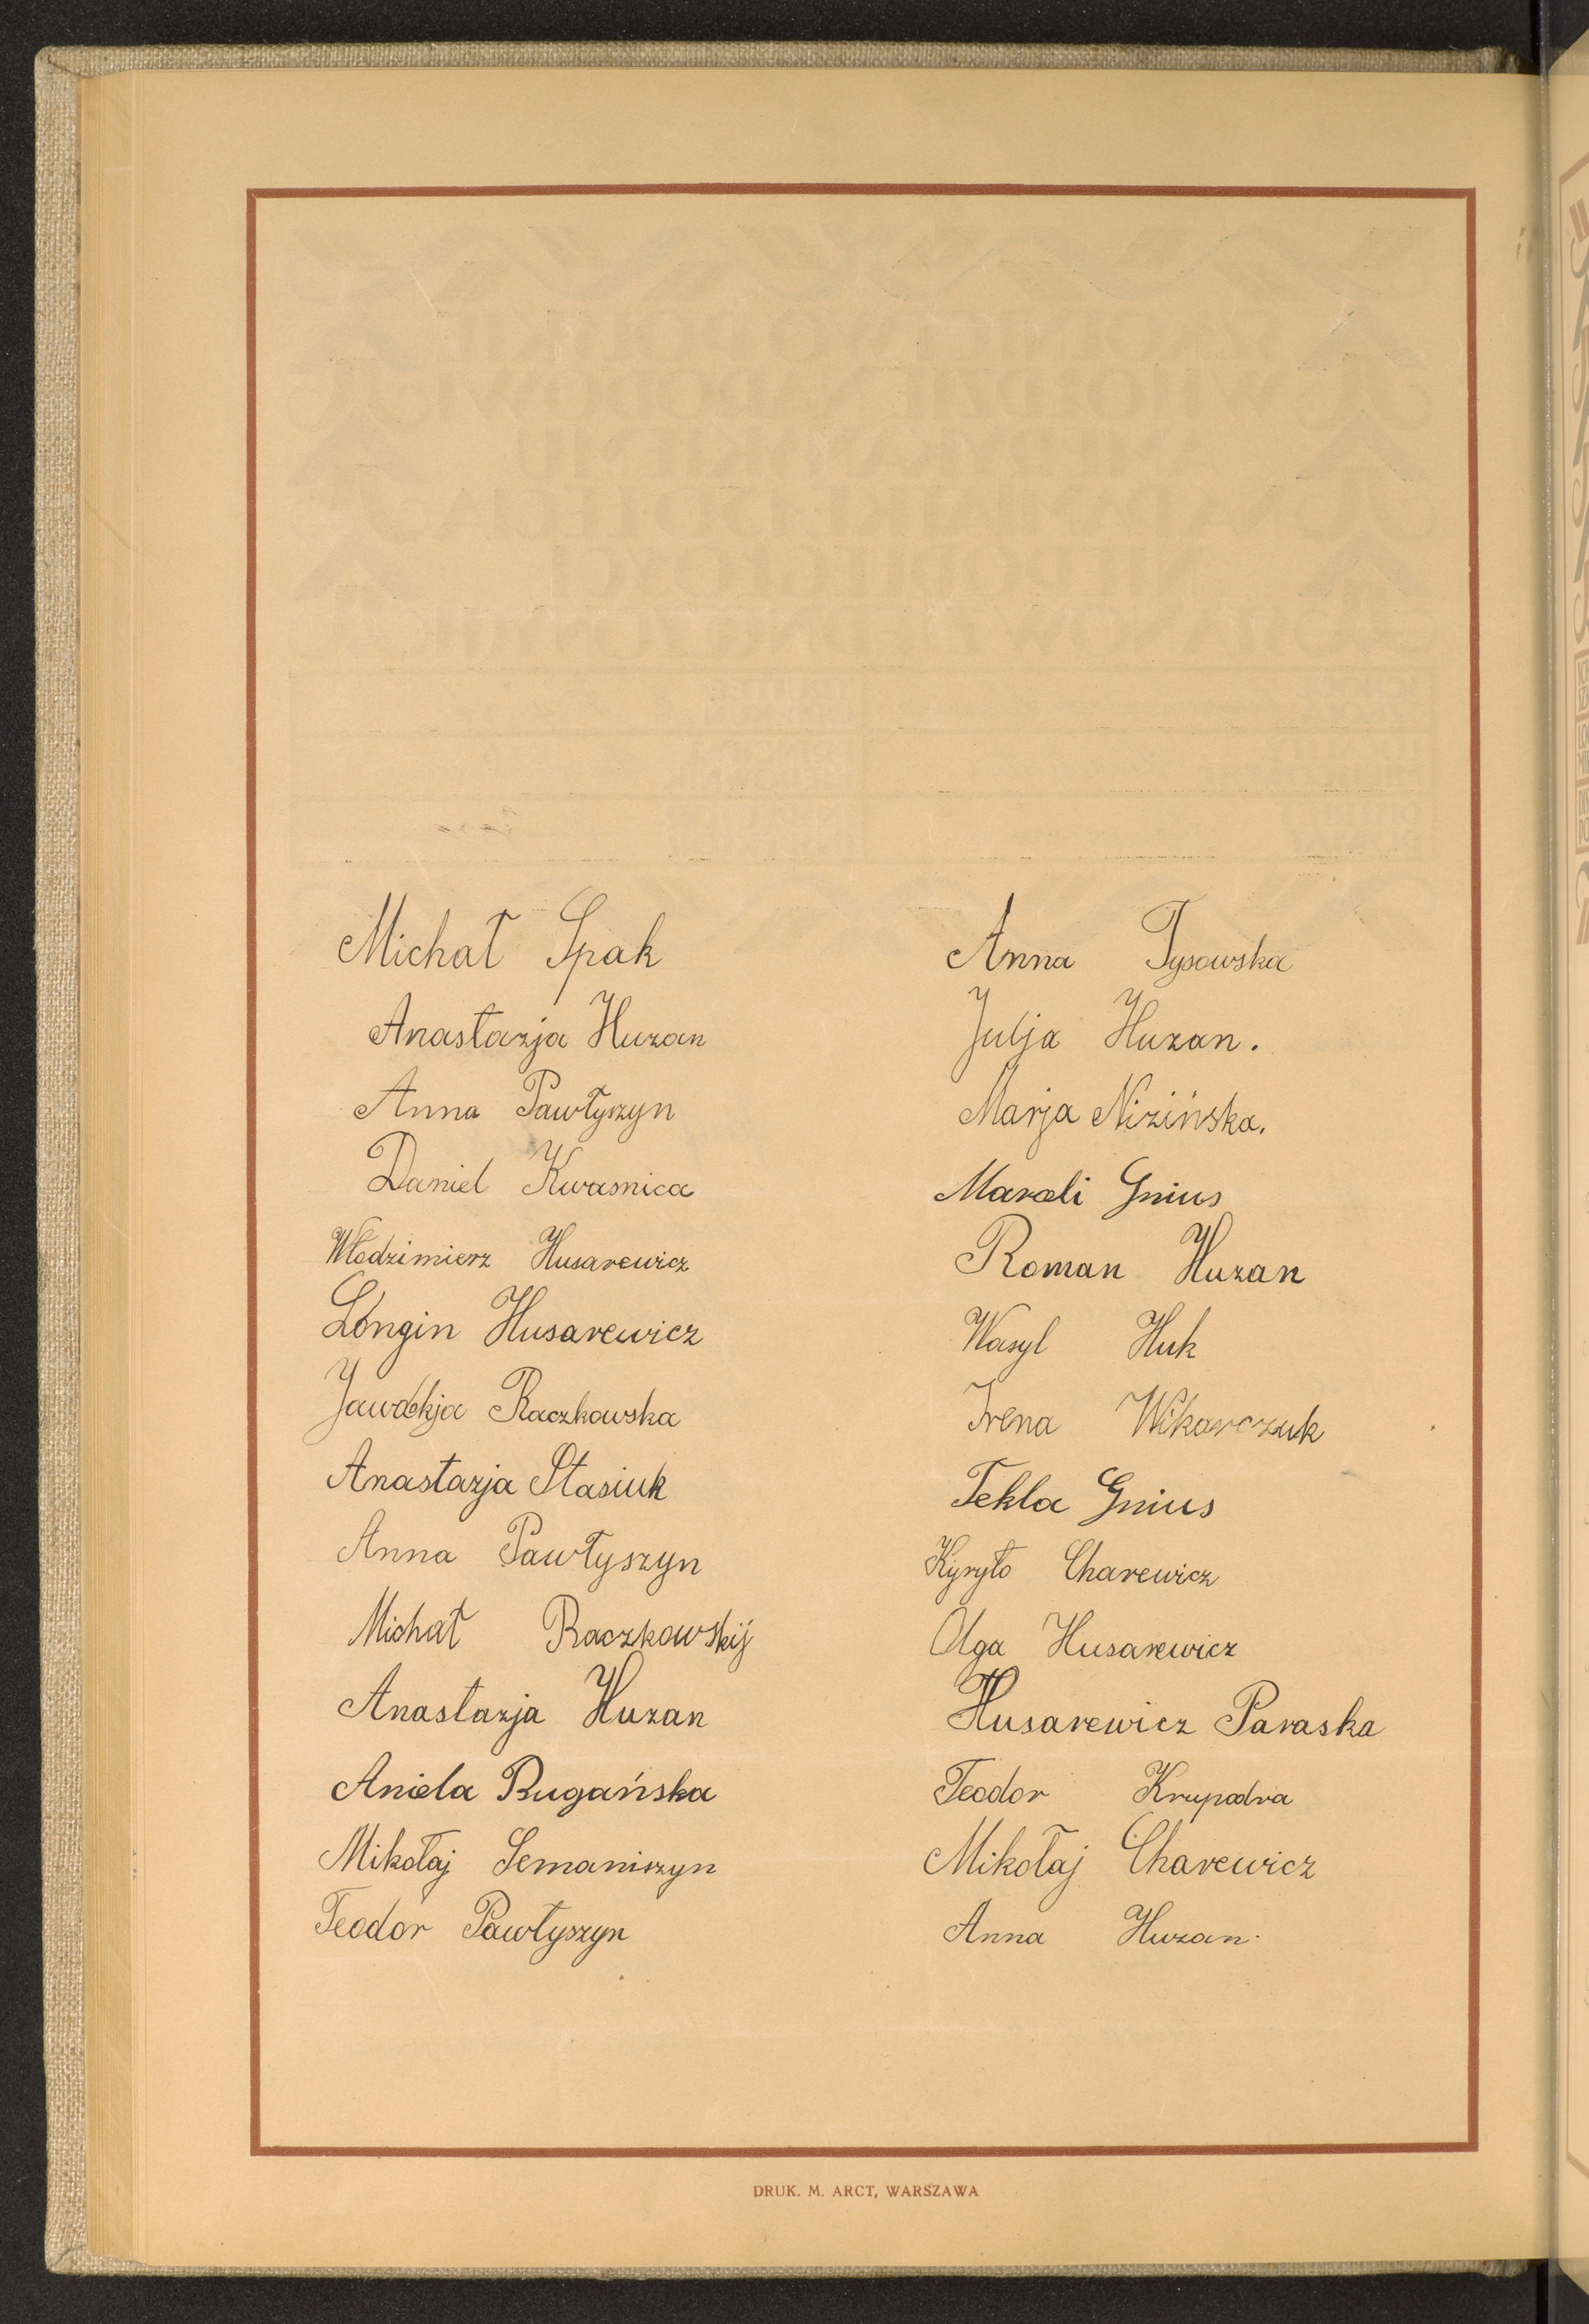 Michał Spak
Anastazja Huzan
Anna Pawłyszyn
Daniel Kwasnica
Włodzimierz Husarewicz
Longin Husarewicz
Jawdokja Raczkowska
Anastazja Stasiuk
Anna Pawłyszyn
Michał Raczkowskij
Anastazja Huzan
Aniela Rugańska
Mikołaj Semaniszyn
Teodor Pawłyszyn
Anna Tysowska
Julja Huzan.
Marja Nizińska.
Gnius
Roman Huzan
Wasyl Huk
Irena Wikarczuk
Tekla Gnius
Kyryło Charewicz
Olga Husarewicz
Husarewicz Paraska
Teodor
Mikołaj Charewicz
Anna Huzan.
DRUK. M. ARCT, WARSZAWA